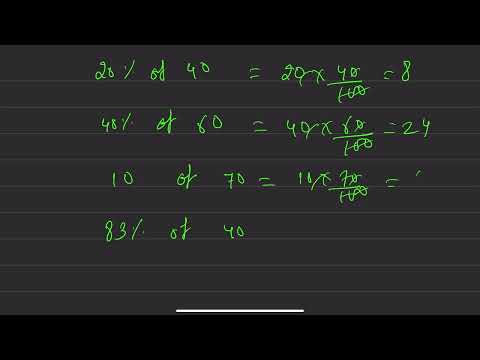 20% of 40 = 20 x 40/100 = 8
40% of 60 = 40 x 60/100 = 24
10 of 70 = 10 x 70/100 =
83% of 40